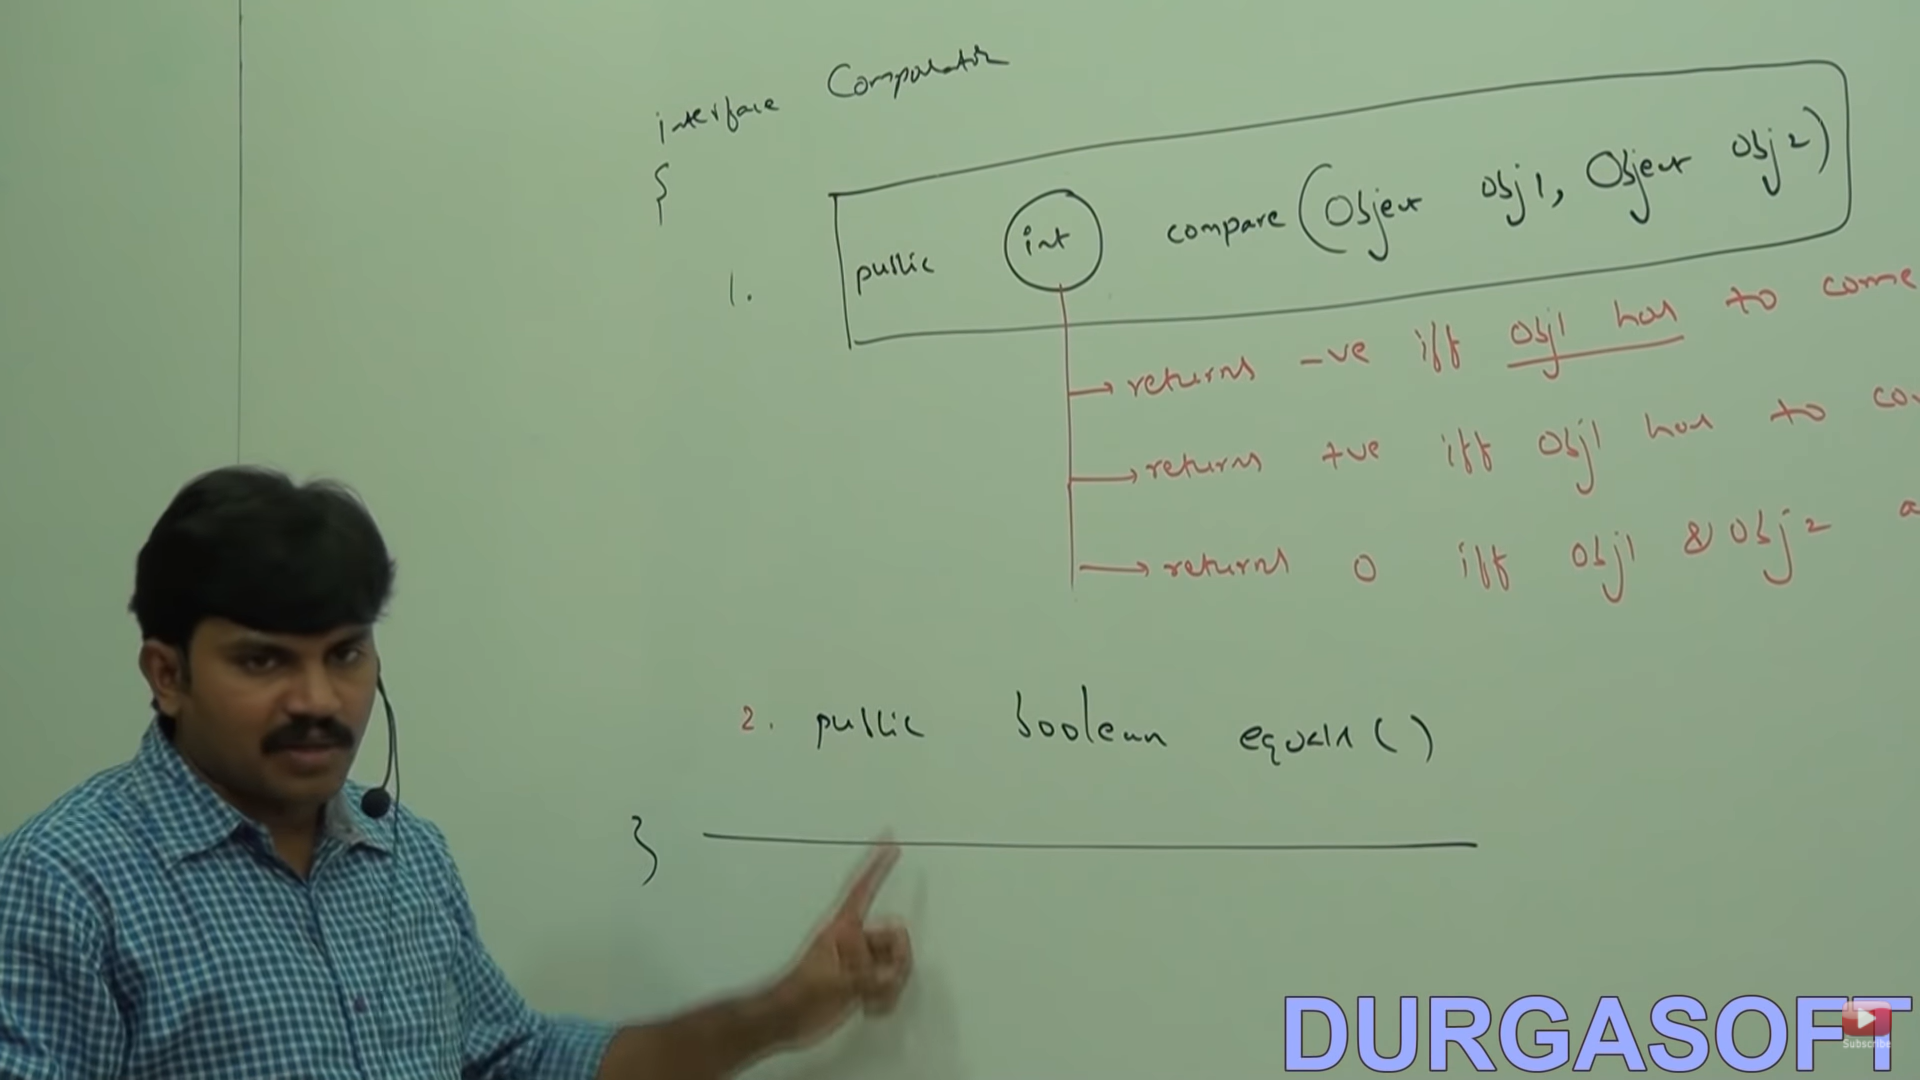 interface Comparator
{
1. public int compare(Object obj1, Object obj2)
returns -ve iff obj1 has to come
returns +ve iff obj1 has to
returns 0 iff obj1 & obj2
2. public boolean equals()
}
DURGASOFT
Subscribe